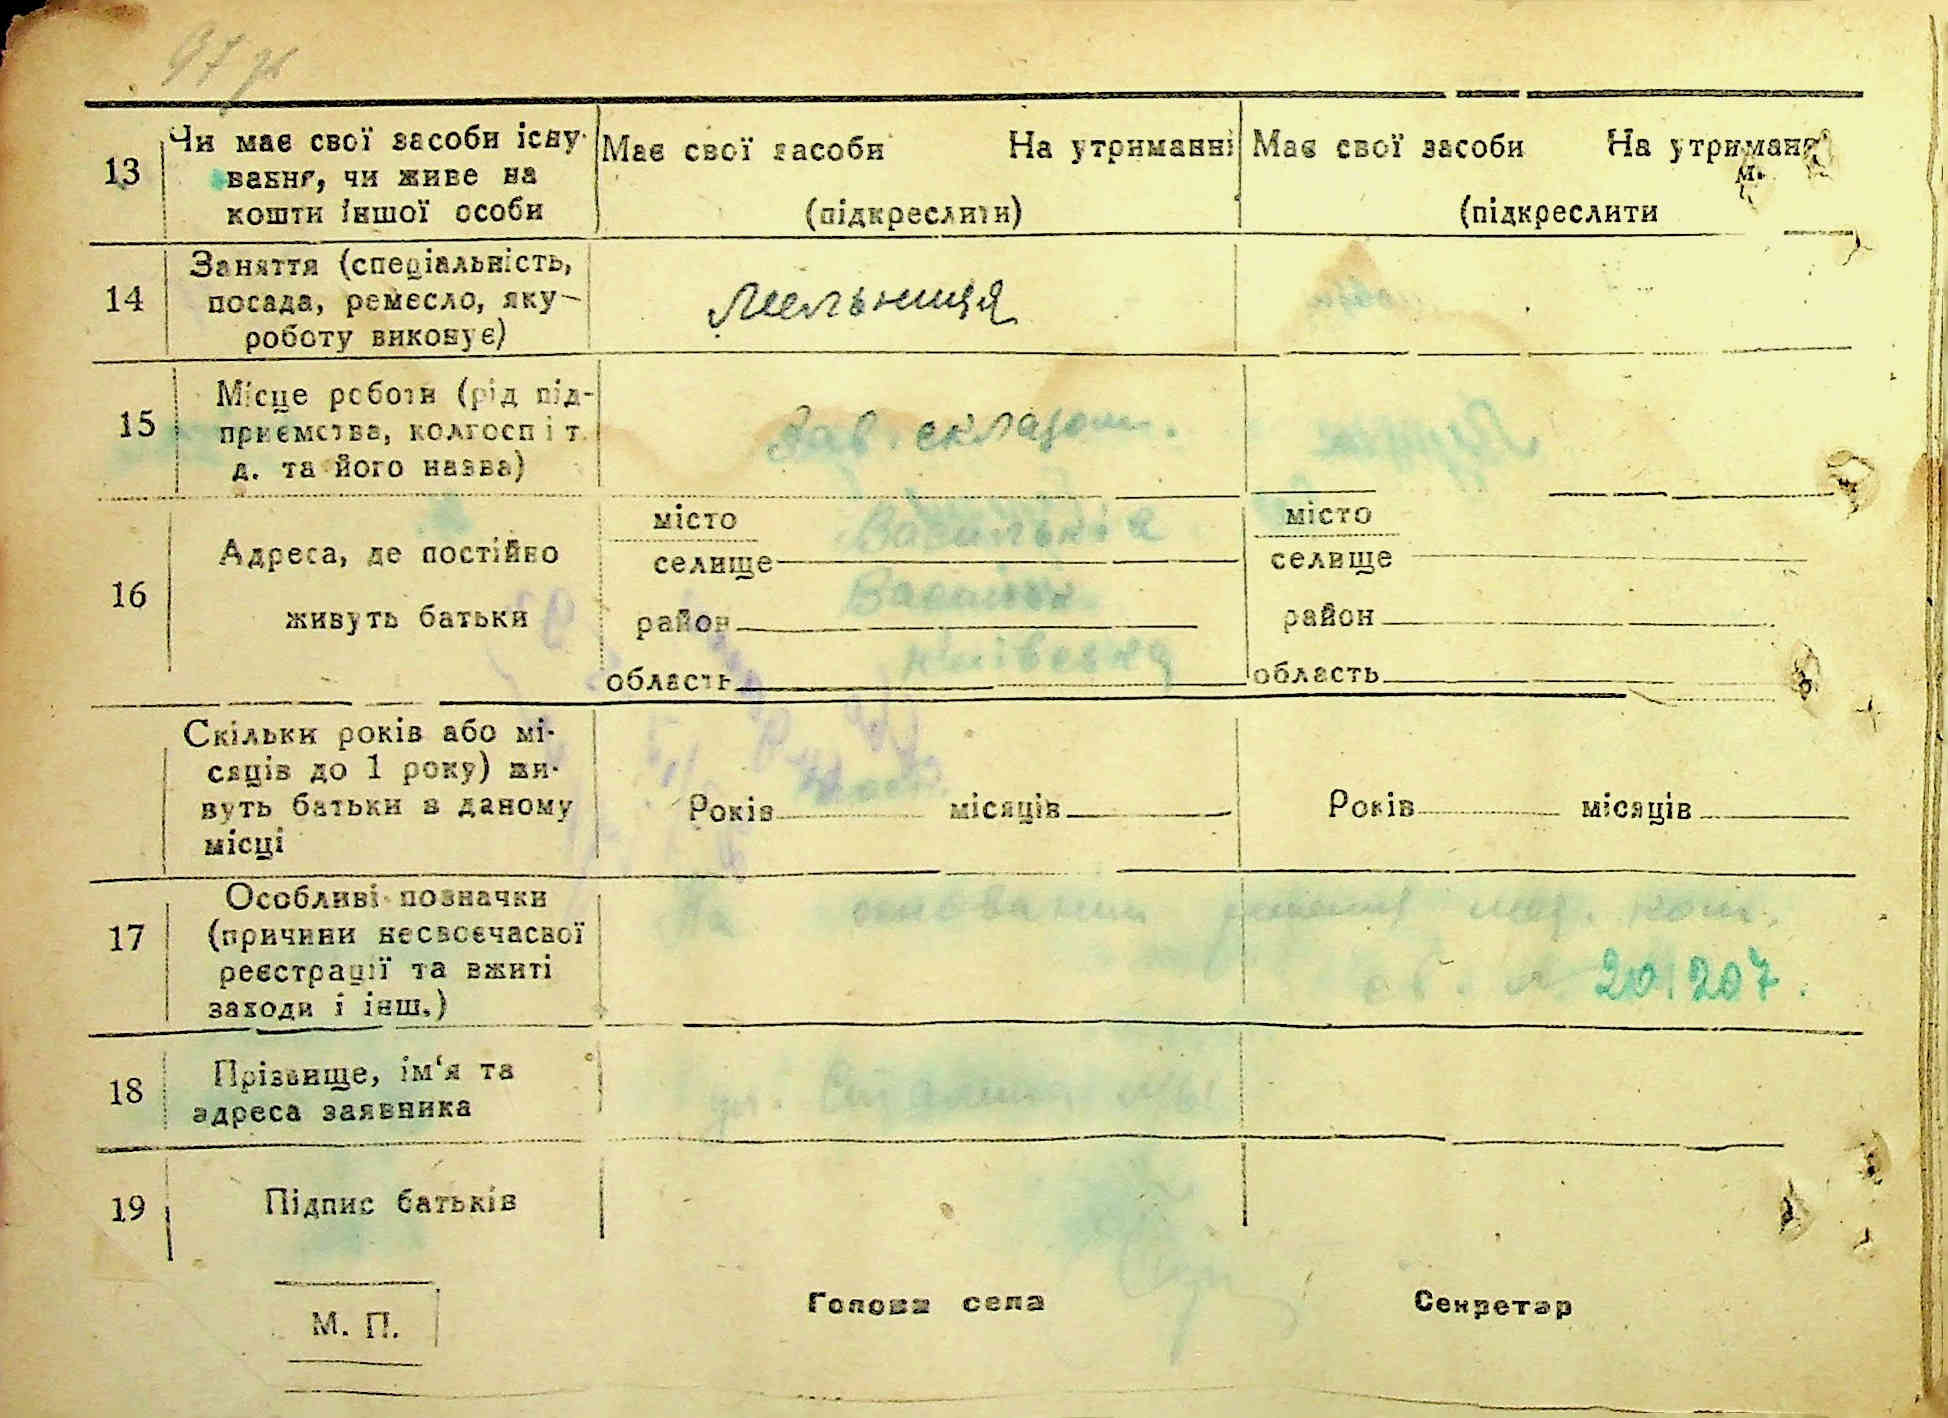 13
Чи має свої засоби існу-
вання, чи живе на
кошти іншої особи
Має свої засоби На утриманні
(підкреслити)
Має свої засоби На утриман
(підкреслити
14
Заняття (спеціальність,
посада, ремесло, яку
роботу виконує)
Мельниця
15
Місце роботи (рід під-
приємства, колгосп і т.
д. та його назва)
Зав. складом.
16
Адреса, де постійно
живуть батьки
місто
селище
Васильків
район
Васильк.
область
Київська
місто
селище
район
область
Скільки років або мі-
сяців до 1 року) жи-
вуть батьки в даному
місці
Років місяців
Років місяців
17
Особливі позначки
(причини несвоєчасної
реєстрації та вжиті
заходи і інш.)
На основании решения мед. ком.
20/207.
18
Прізвище, ім‘я та
адреса заявника
ул.
19
Підпис батьків
М. П.
Голова села Секретар